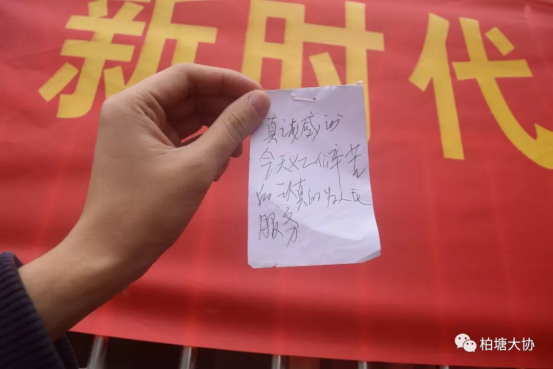 新时代
真诚感谢
今天义工们辛苦
的认真的为人民
服务
柏塘大协